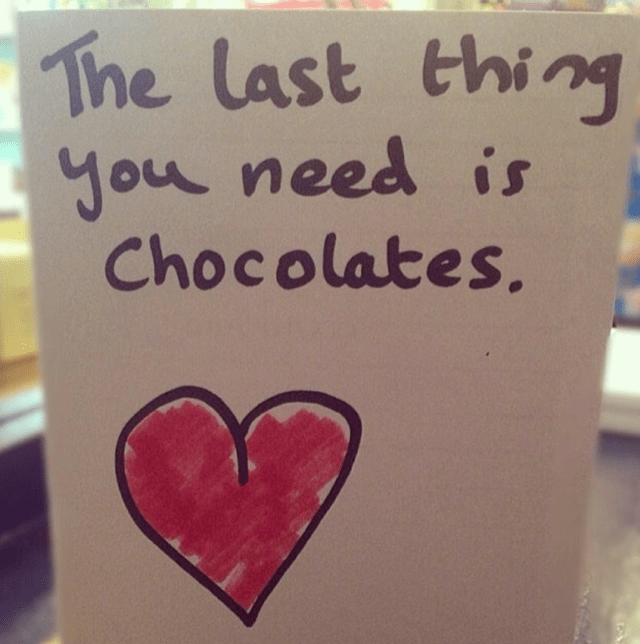 The last thing
you need is
Chocolates.